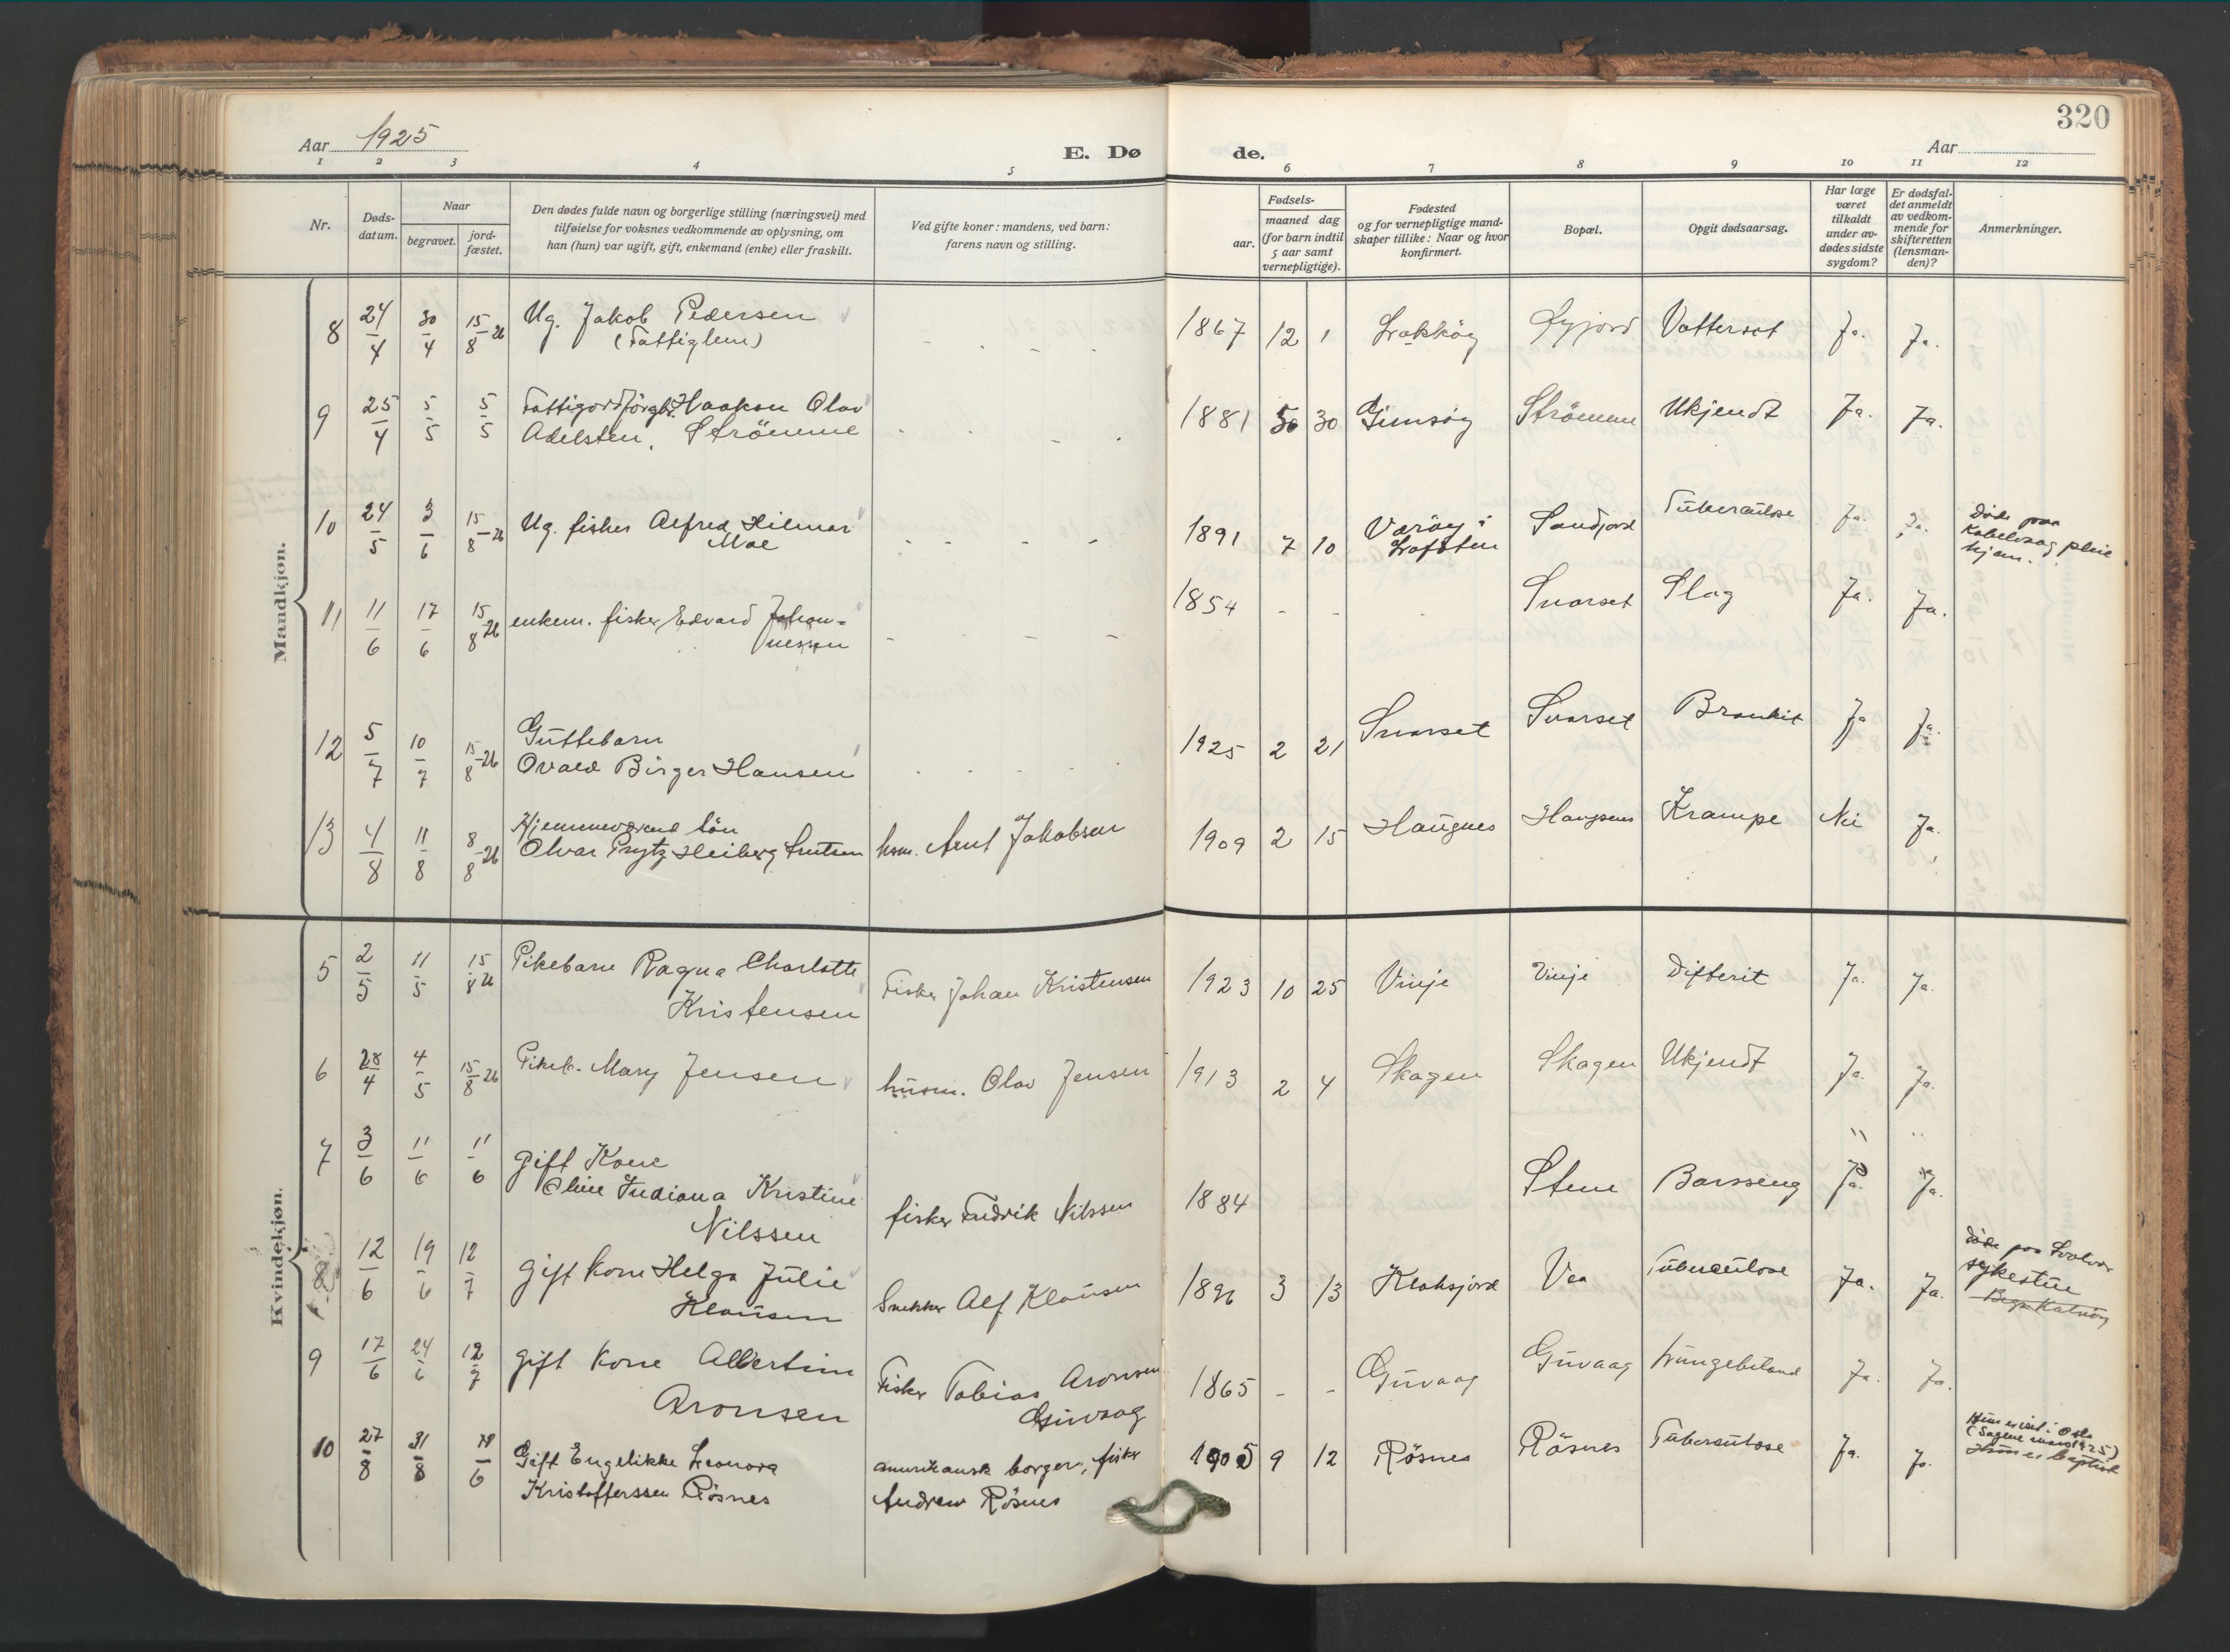 320
Aar 1925
E. Dø
de.
Aar
1 2 3 4 5 6 7 8 9 10 11 12
Nr.
Døds-
datum.
Naar
begravet.
jord-
fæstet.
Den dødes fulde navn og borgerlige stilling (næringsvei) med
tilføielse for voksnes vedkommende av oplysning, om
han (hun) var ugift, gift, enkemand (enke) eller fraskilt.
Ved gifte koner: mandens, ved barn:
farens navn og stilling.
Fødsels-
aar.
maaned dag
(for barn indtil
5 aar samt
vernepligtige).
Fødested
og for vernepligtige mand-
skaper tillike: Naar og hvor
konfirmert.
Bopæl.
Opgit dødsaarsag.
Har læge
været
tilkaldt
under av-
dødes sidste
sygdom?
Er dødsfal-
det anmeldt
av vedkom-
mende for
skifteretten
(lensman-
den)?
Anmerkninger.
Mandkjøn.
8 24/4 30/4 15/8-26 Ug. Jakob Pedersen 1867 12 1 Vattersot Ja. Ja.
(Fattiglem)
9 25/4 5/5 5/5 Haakon Olav 1881 30 Gimsöy Strömme Ukjendt Ja. Ja.
Adelsten, Strömme
10 24/5 3/6 15/8-26 Ug. fisker Alfred Hilmar 1891 7 10 Væröy i Sandjord Tüberculose Ja. Ja. Döde paa
Moe Lofoten Kabelvaag pleie
hjem.
11 11/6 17/6 15/8 26 enkem. fisker Edvard Johan- 1854 - - Svarset Slag Ja. Ja.
nessen
12 5/7 10/7 15/8-26 Guttebarn 1925 2 21 Svarset Svarset Bronkit Ja Ja.
Ovald Birger Hansen
13 4/8 11/8 8/8-26 Hjemmeværend sön
Olvar Prytz Heiberg Arntsen hsm. Arnt Jakobsen 1909 2 15 Haugnes Krampe Nei Ja.
Kvindekjøn.
5 2/5 11/5 15/8 26 Pikebarn Ragna Charlotte Fisker Johan Kristensen 1923 10 25 Vinje Vinje Difterit Ja. Ja.
Kristensen
6 28/4 4/5 15/8-26 Pikeb. Mary Jensen husm. Olav Jensen 1913 2 4 Skagen Skagen Ukjendt Ja. Ja.
7 3/6 11/6 11/6 gift Kone
Oline Indiana Kristine fisker Fredrik Nilssen 1884 Stene Barsseng Ja. Ja.
Nilssen
8 12/6 19/6 12/7 gift kone Helga Julie Snekker Alf Klausen 1896 3 13 Vea Tuberculose Ja. Ja. döde paa Svolvær
Klausen sykestue
9 17/6 24/6 12/7 gift kone Albertine Fisker Tobias Aronsen 1865 - - Guvaag Guvaag Ja. Ja.
Aronsen Guvaag
10 27/8 31/8 Gift Engelikke Leonora amerikansk borger, fisker 1905 9 12 Rösnes Rösnes Tuberculose Ja. Ja.
Kristofferssen Rösnes Andrew Rösnes
Hun er baptist